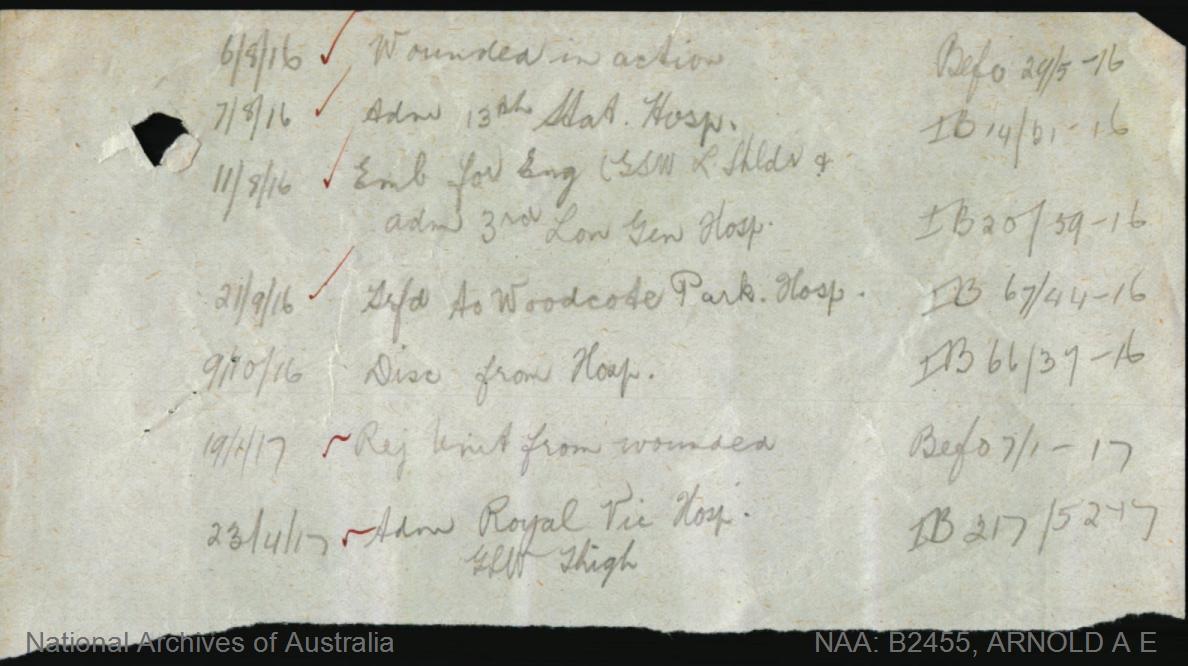 6/8/16 Wounded in action Befo 29/5-16
7/8/16 Adm 13th Stat. Hosp. IB 14/61-16
11/8/16 Emb for Eng (GSW L Shldr &
adm 3rd Lon Gen Hosp. IB 20/39-16
21/9/16 Trfd to Woodcote Park. Hosp. IB 67/44-16
9/10/16 Disc from Hosp. IB 66/37-16
19/1/17 Rej Unit from wounded Befo 7/1-17
23/4/17 Adm Royal Vic Hosp. IB 217/52-17
GSW Thigh
National Archives of Australia NAA: B2455, ARNOLD A E